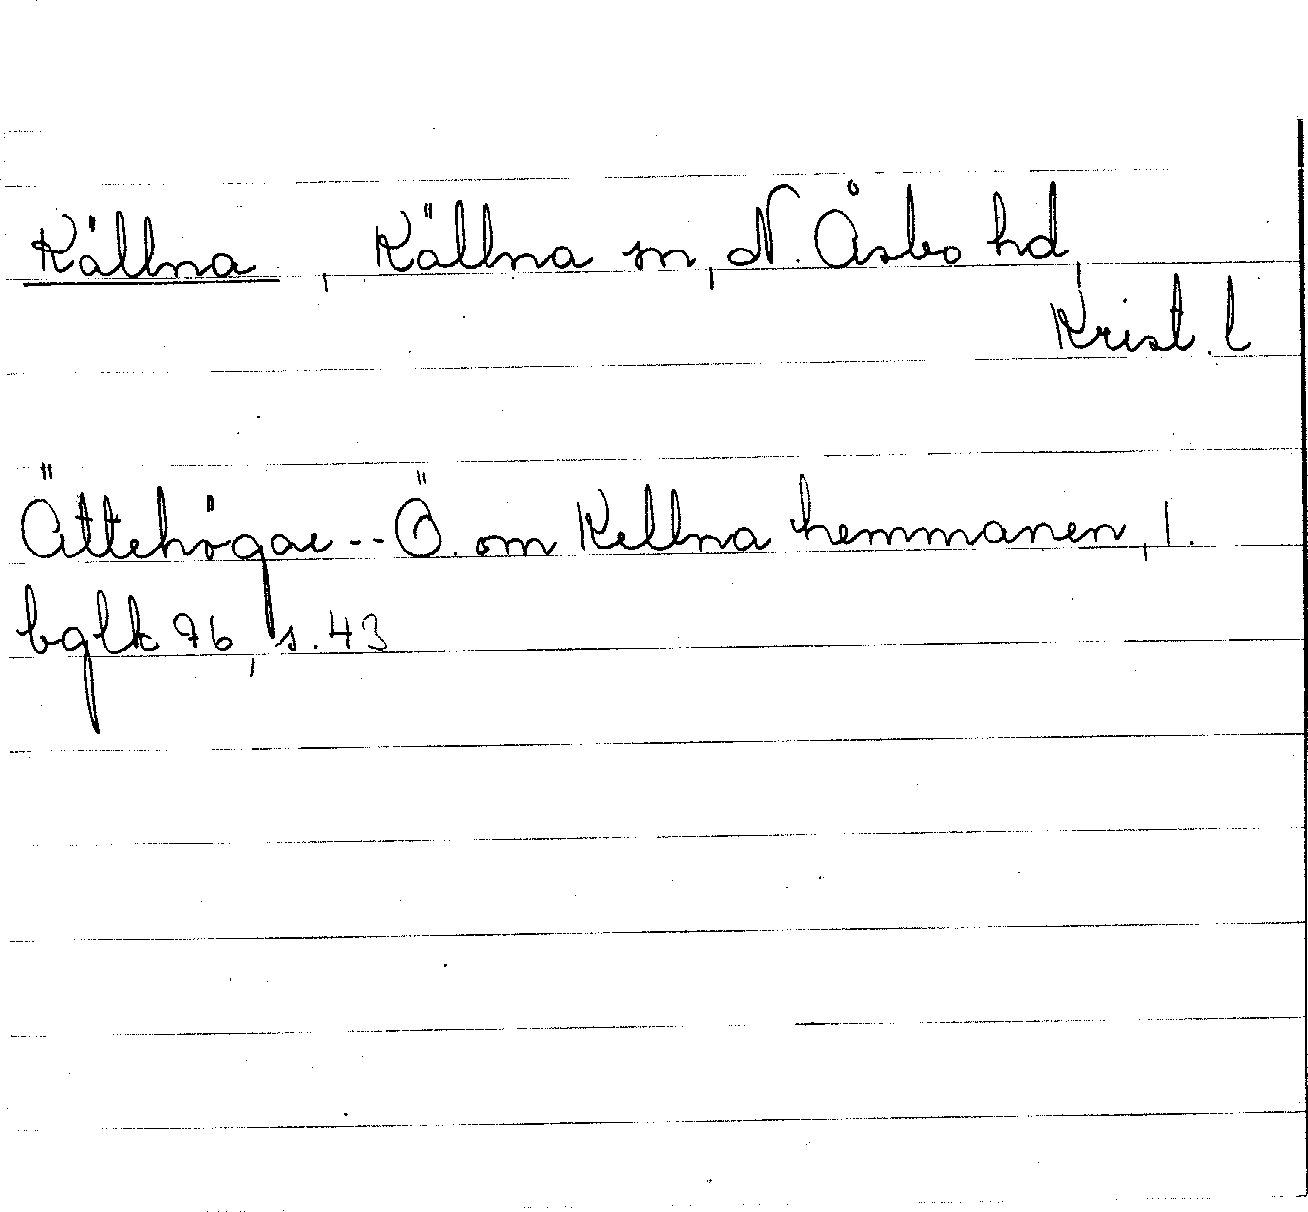 Källna, Källna sn, N. Åsbo hd,
Krist. l
Ättehögar -- Ö. om Kellna hemmanen, 1.
bglk 96, s. 43